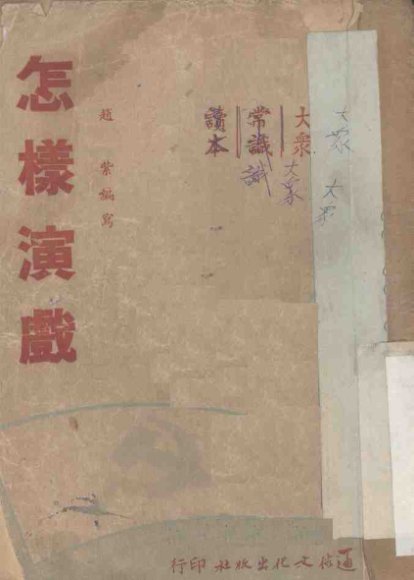 怎樣演戲
趙紫編寫
大衆
常識
讀本
識
大衆
大衆
大
通俗文化出版社印行